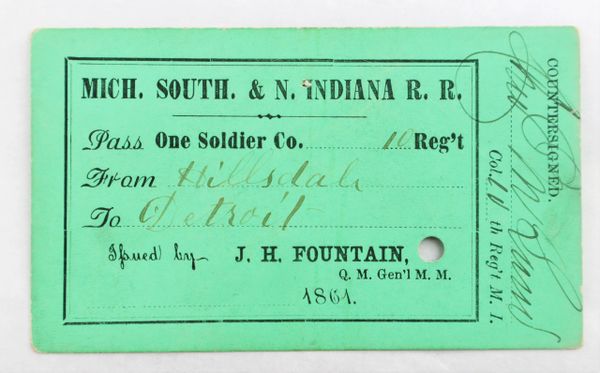 MICH. SOUTH. & N. INDIANA R. R.
Pass One Soldier Co. 10 Reg't
From Hillsdale
To Detroit
Issued by J. H. FOUNTAIN,
Q. M. Gen'l M. M.
1861.
COUNTERSIGNED,
Col. 10 th Reg't M. I.